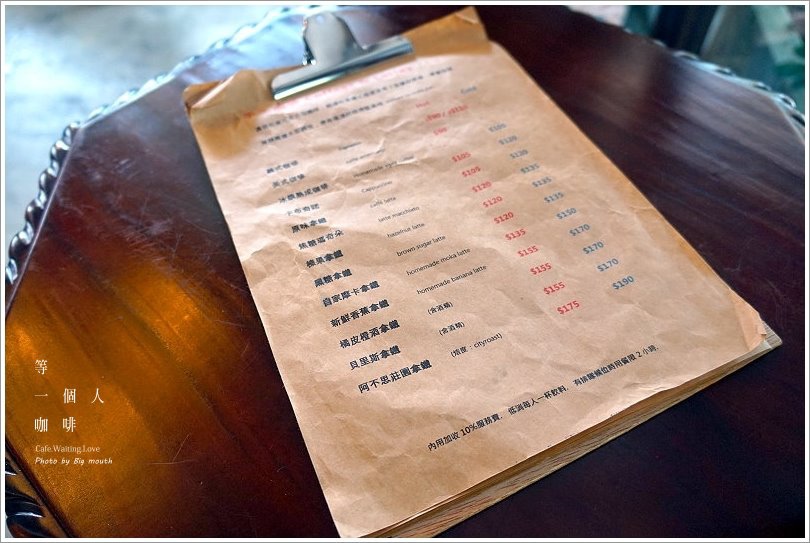 Hot Cold
義式咖啡 Espresso $90 / $110
美式咖啡 $90 $105
冰釀熟成咖啡 Homemade $120
卡布奇諾 Cappuccino $105 $120
原味拿鐵 caffe latte $105 $135
焦糖瑪奇朵 latte macchiato $120 $135
榛果拿鐵 hazelnut latte $120 $135
黑糖拿鐵 brown sugar latte $120 $150
自家摩卡拿鐵 homemade moka latte $135 $170
新鮮香蕉拿鐵 homemade banana latte $155 $170
橘皮橙酒拿鐵 (含酒精) $155 $170
貝里斯拿鐵 (含酒精) $155 $190
阿不思莊園拿鐵 (焙度：cityroast) $175
內用加收 10%服務費，低消每人一杯飲料，有排隊候位時用餐限 2 小時.
等
一個人
咖啡
Cafe.Waiting.Love
Photo by Big mouth